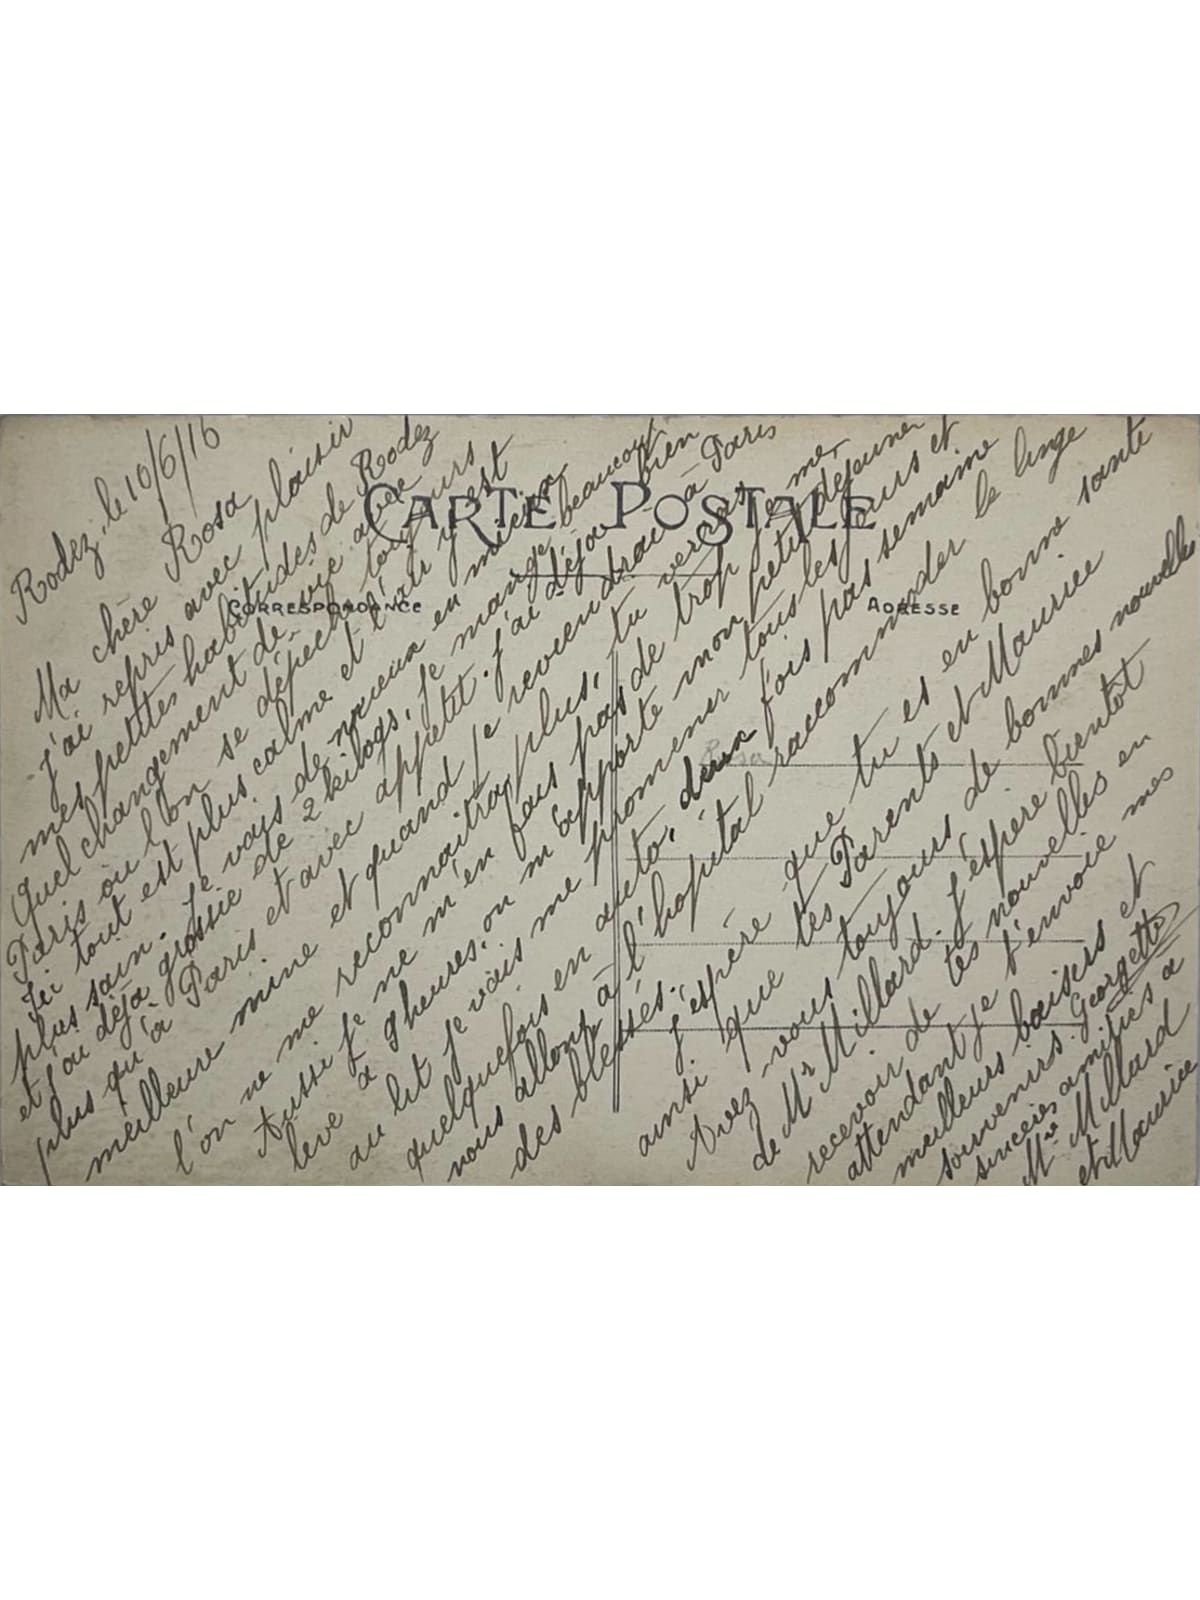 CARTE POSTALE
CORRESPONDANCE
ADRESSE
Rodez, le 10/6/16
Ma chère Rosa
j'ai repris avec plaisir
mes petites habitudes de Rodez
Quel changement de vie avec
Paris où l'on se dépêch toujours
Ici tout est plus calme et l'air y est
plus sain. Je vais de mieux en mieux
et j'ai déjà grossie de 2 kilogs, je mange beaucoup
plus qu'à Paris et avec appétit. J'ai déjà bien
meilleure mine et quand je reviendrai à Paris
l'on ne me reconnaitra plus, tu verras
Aussi je ne m'en fais pas de trop je me
lève à 9 heures, on m'apporte mon petit déjeuner
au lit je vais me promener tous les jours et
quelquefois en auto, deux fois par semaine
nous allons à l'hopital raccommoder le linge
des blessés.
J'espère que tu es en bonne santé
ainsi que tes Parents et Maurice
Avez vous toujours de bonnes nouvelles
de Mr Millard. J'éspère bientot
recevoir de tes nouvelles en
attendant je t'envoie mes
meilleurs baisers et
souvenirs. Georgette
sincères amitiés à
Mme Millard
et Maurice
Rosa